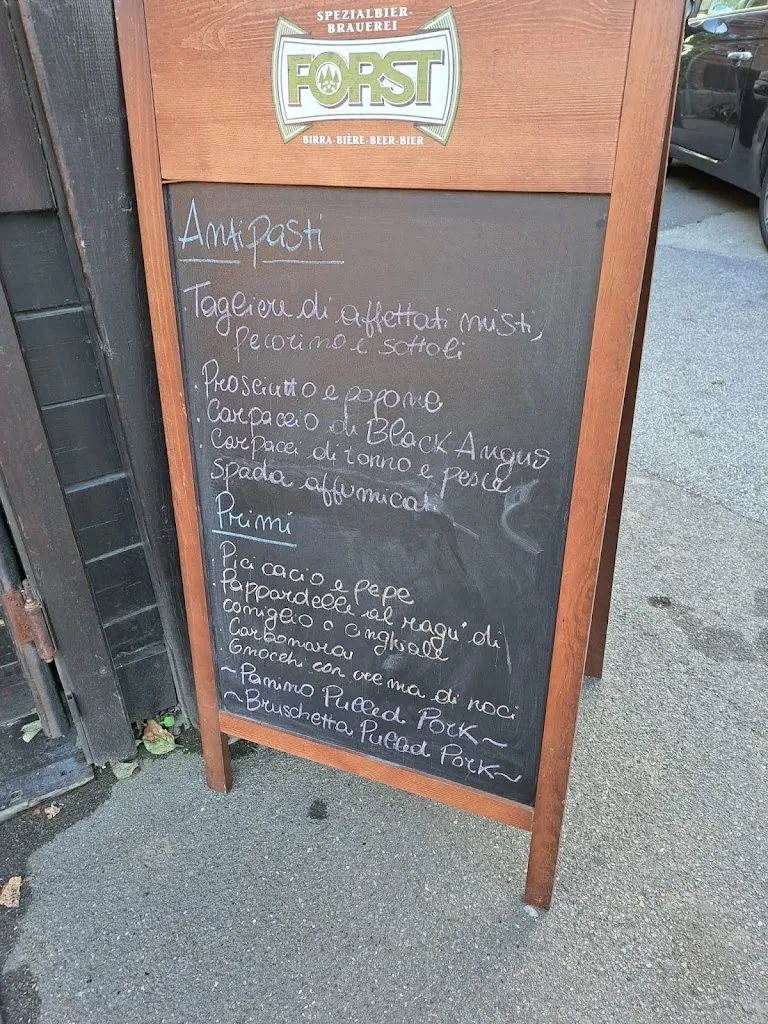 SPEZIALBIER-
BRAUEREI
FORST
BIRRA-BIÈRE-BEER-BIER
Antipasti
Tagliere di affettati misti,
pecorino e sottoli
· Prosciutto e popone
· Carpaccio di Black Angus
· Carpacci di tonno e pesce
spada affumicati
Primi
· Pici cacio e pepe
· Pappardelle al ragu' di
coniglio o cinghiale
· Carbonara
· Gnocchi con crema di noci
~Panino Pulled Pork~
~Bruschetta Pulled Pork~